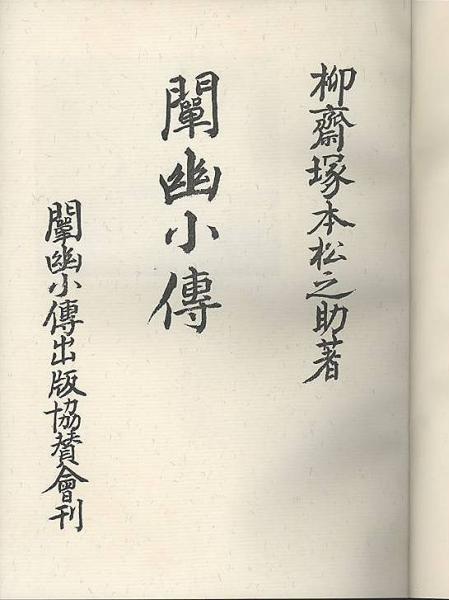 柳齋塚本松之助著
闡幽小傳
闡幽小傳出版協賛會刊